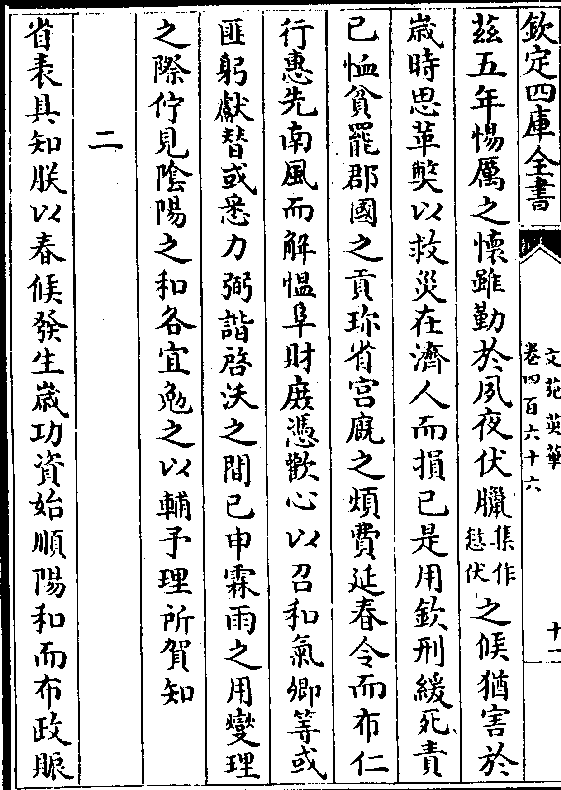 欽定四庫全書
文苑英華
卷四百六十六
十一
茲五年惕厲之懷雖勤於夙夜伏臘集作愆伏之候猶害於
歲時思革弊以救災在濟人而損已是用欽刑緩死責
已恤貧罷郡國之貢珍省宫廐之煩費延春令而布仁
行惠先南風而解愠阜財庶憑歡心以召和氣卿等或
匪躬獻替或悉力弼諧啓沃之間已申霖雨之用燮理
之際佇見陰陽之和各宜勉之以輔予理所賀知
二
省表具知朕以春候發生歲功資始順陽和而布政賑